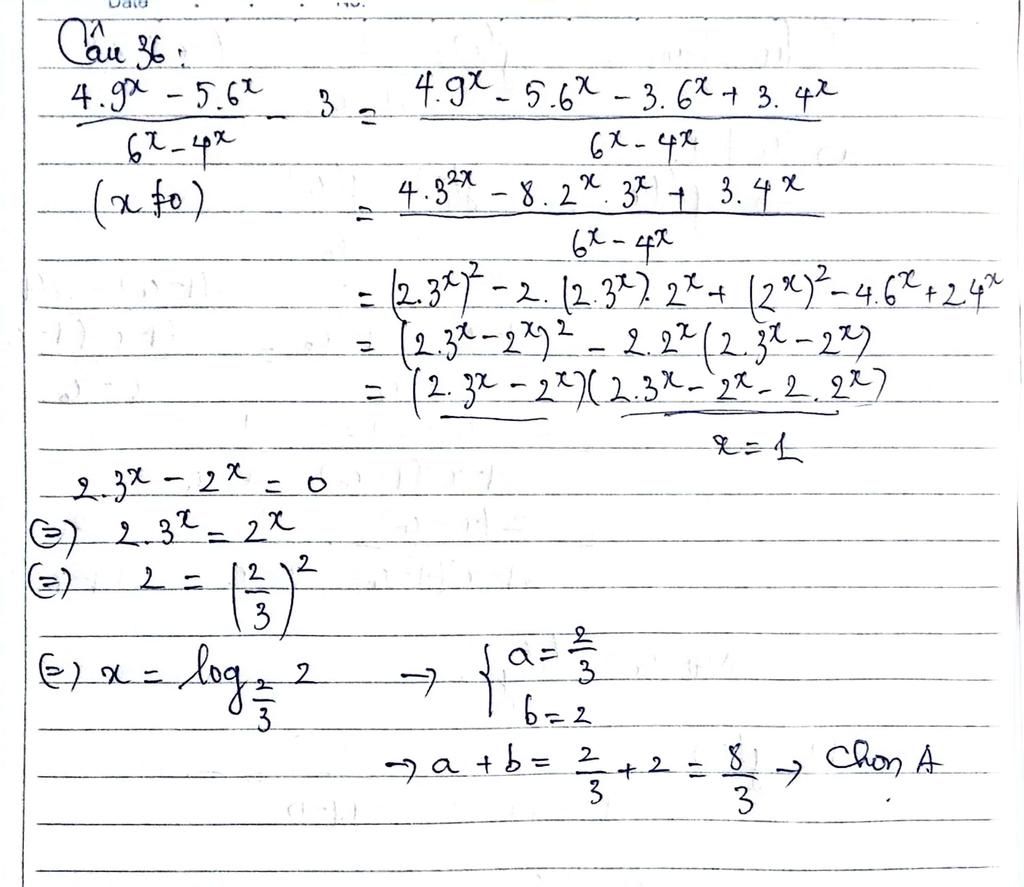 Câu 36:
(4.9^x - 5.6^x)/(6^x - 4^x) - 3 = (4.9^x - 5.6^x - 3.6^x + 3.4^x)/(6^x - 4^x)
(x ≠ 0) = (4.3^{2x} - 8.2^x.3^x + 3.4^x)/(6^x - 4^x)
= (2.3^x)^2 - 2.(2.3^x).2^x + (2^x)^2 - 4.6^x + 2.4^x
= (2.3^x - 2^x)^2 - 2.2^x(2.3^x - 2^x)
= (2.3^x - 2^x)(2.3^x - 2^x - 2.2^x)
x = 1
2.3^x - 2^x = 0
(=) 2.3^x = 2^x
(=) 2 = (2/3)^2
(=) x = log_{2/3} 2 → { a = 2/3
b = 2
→ a + b = 2/3 + 2 = 8/3 → Chọn A